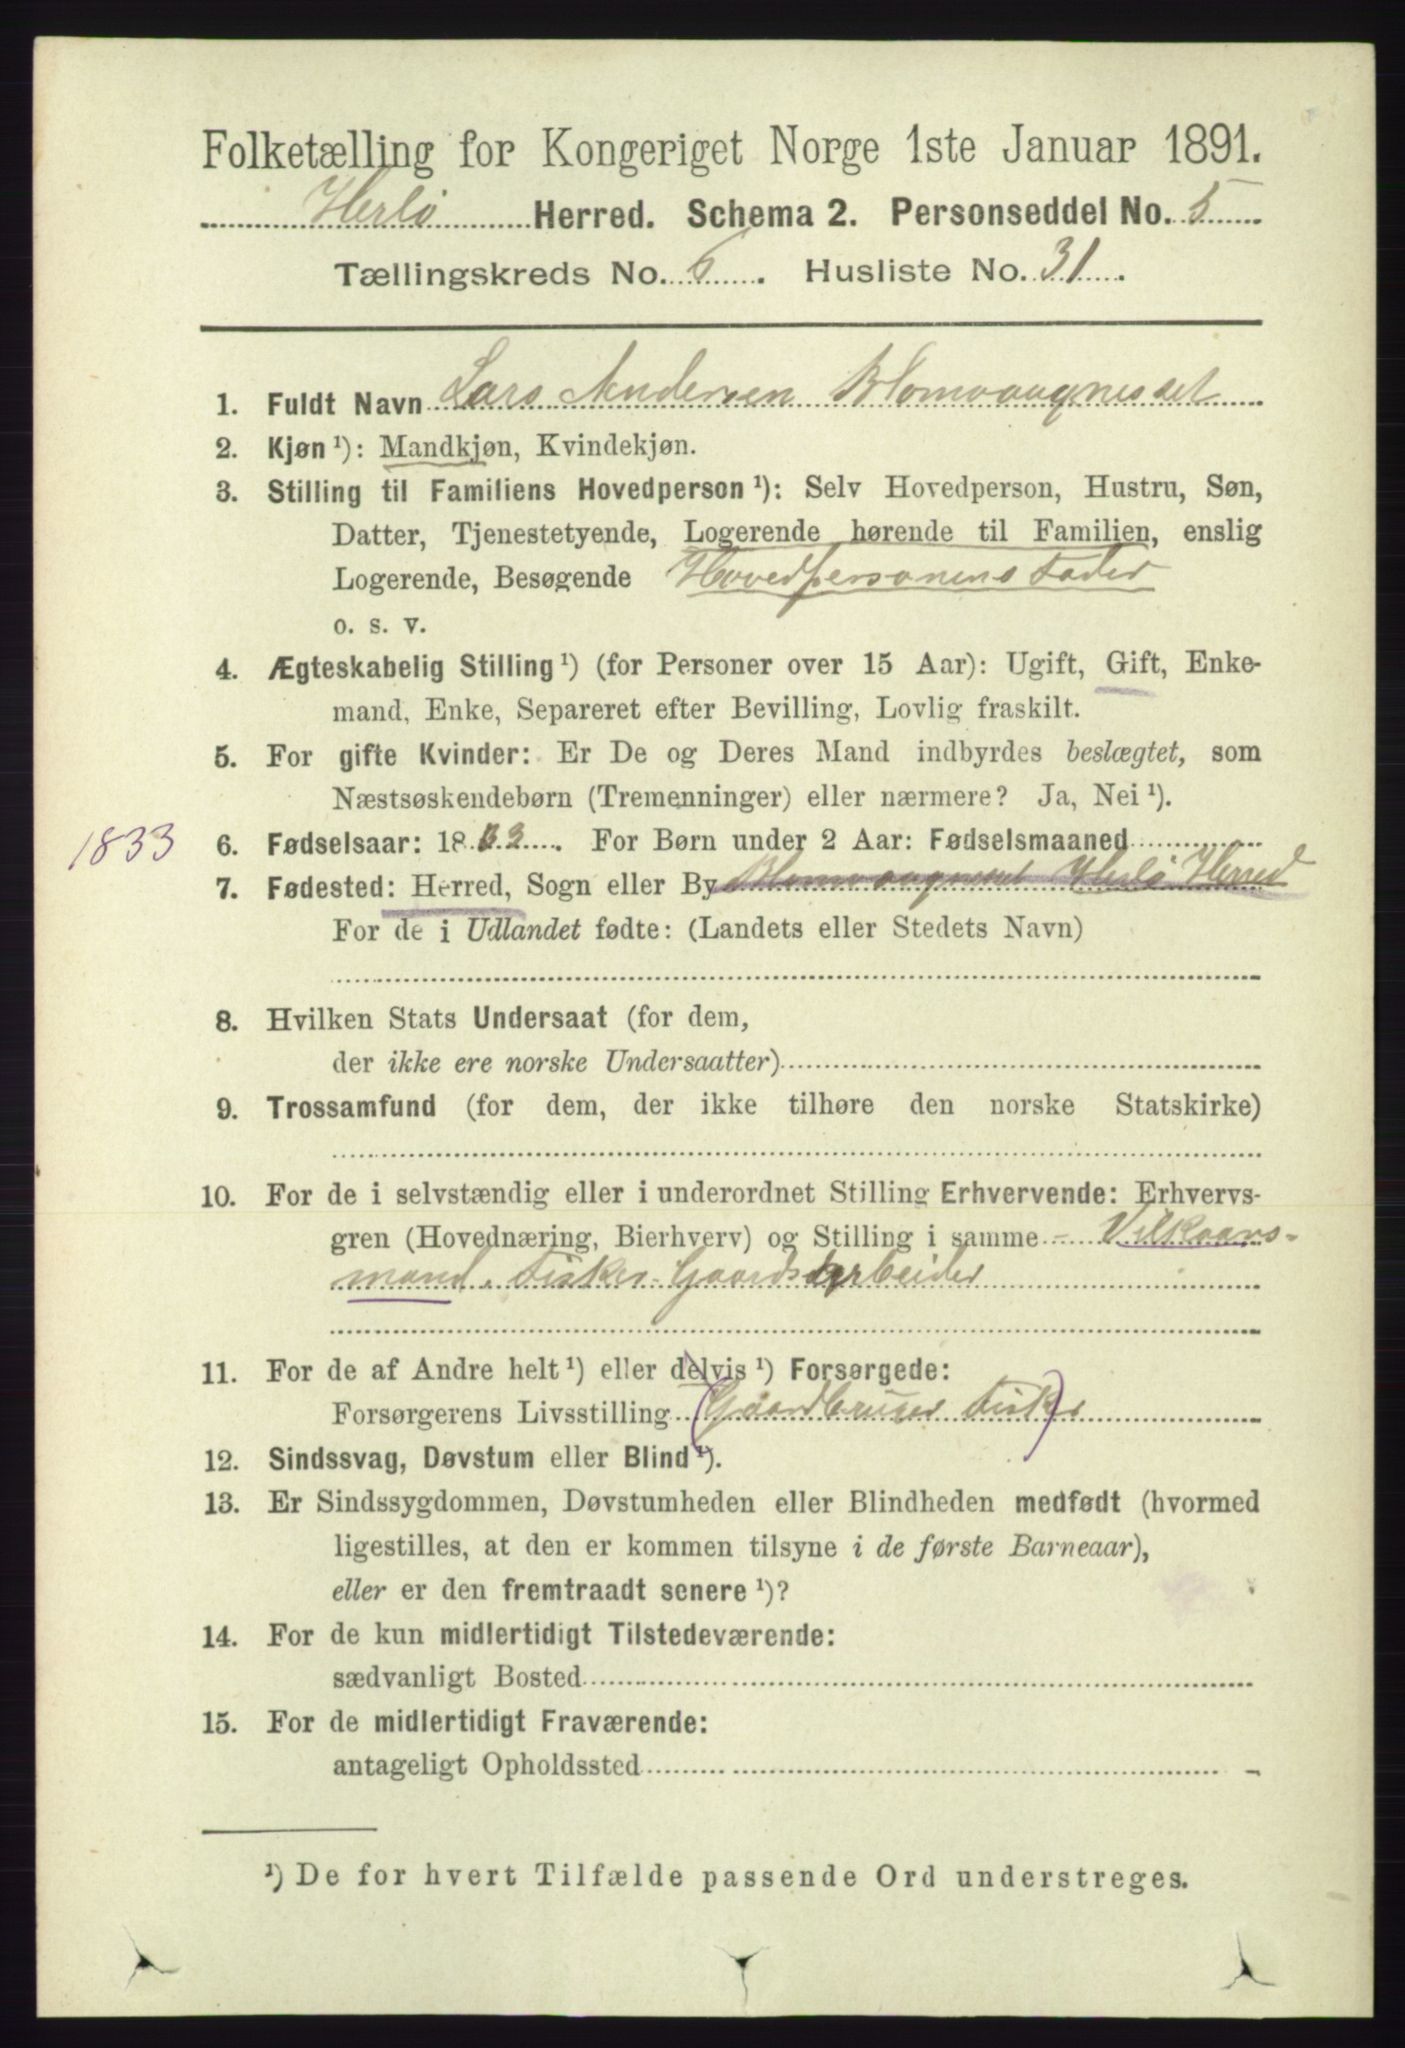 Folketælling for Kongeriget Norge 1ste Januar 1891.
Herlö Herred. Schema 2. Personseddel No. 5
Tællingskreds No. 6. Husliste No. 31.
1. Fuldt Navn Lars Andersen Blomvaagnesset
2. Kjøn ¹): Mandkjøn, Kvindekjøn.
3. Stilling til Familiens Hovedperson ¹): Selv Hovedperson, Hustru, Søn,
Datter, Tjenestetyende, Logerende hørende til Familien, enslig
Logerende, Besøgende Hovedpersonens Fader
o. s. v.
4. Ægteskabelig Stilling ¹) (for Personer over 15 Aar): Ugift, Gift, Enke-
mand, Enke, Separeret efter Bevilling, Lovlig fraskilt.
5. For gifte Kvinder: Er De og Deres Mand indbyrdes beslægtet, som
Næstsøskendebørn (Tremenninger) eller nærmere? Ja, Nei ¹).
1833 6. Fødselsaar: 1833. For Børn under 2 Aar: Fødselsmaaned
7. Fødested: Herred, Sogn eller By Blomvaagnesset Herlö Herred
For de i Udlandet fødte: (Landets eller Stedets Navn)
8. Hvilken Stats Undersaat (for dem,
der ikke ere norske Undersaatter)
9. Trossamfund (for dem, der ikke tilhøre den norske Statskirke)
10. For de i selvstændig eller i underordnet Stilling Erhvervende: Erhvervs-
gren (Hovednæring, Bierhverv) og Stilling i samme - Vilkaars-
mand. Fisker Gaardsarbeider
11. For de af Andre helt ¹) eller delvis ¹) Forsørgede:
Forsørgerens Livsstilling (Gaardbruger Fisker)
12. Sindssvag, Døvstum eller Blind ¹).
13. Er Sindssygdommen, Døvstumheden eller Blindheden medfødt (hvormed
ligestilles, at den er kommen tilsyne i de første Barneaar),
eller er den fremtraadt senere ¹)?
14. For de kun midlertidigt Tilstedeværende:
sædvanligt Bosted
15. For de midlertidigt Fraværende:
antageligt Opholdssted
¹) De for hvert Tilfælde passende Ord understreges.